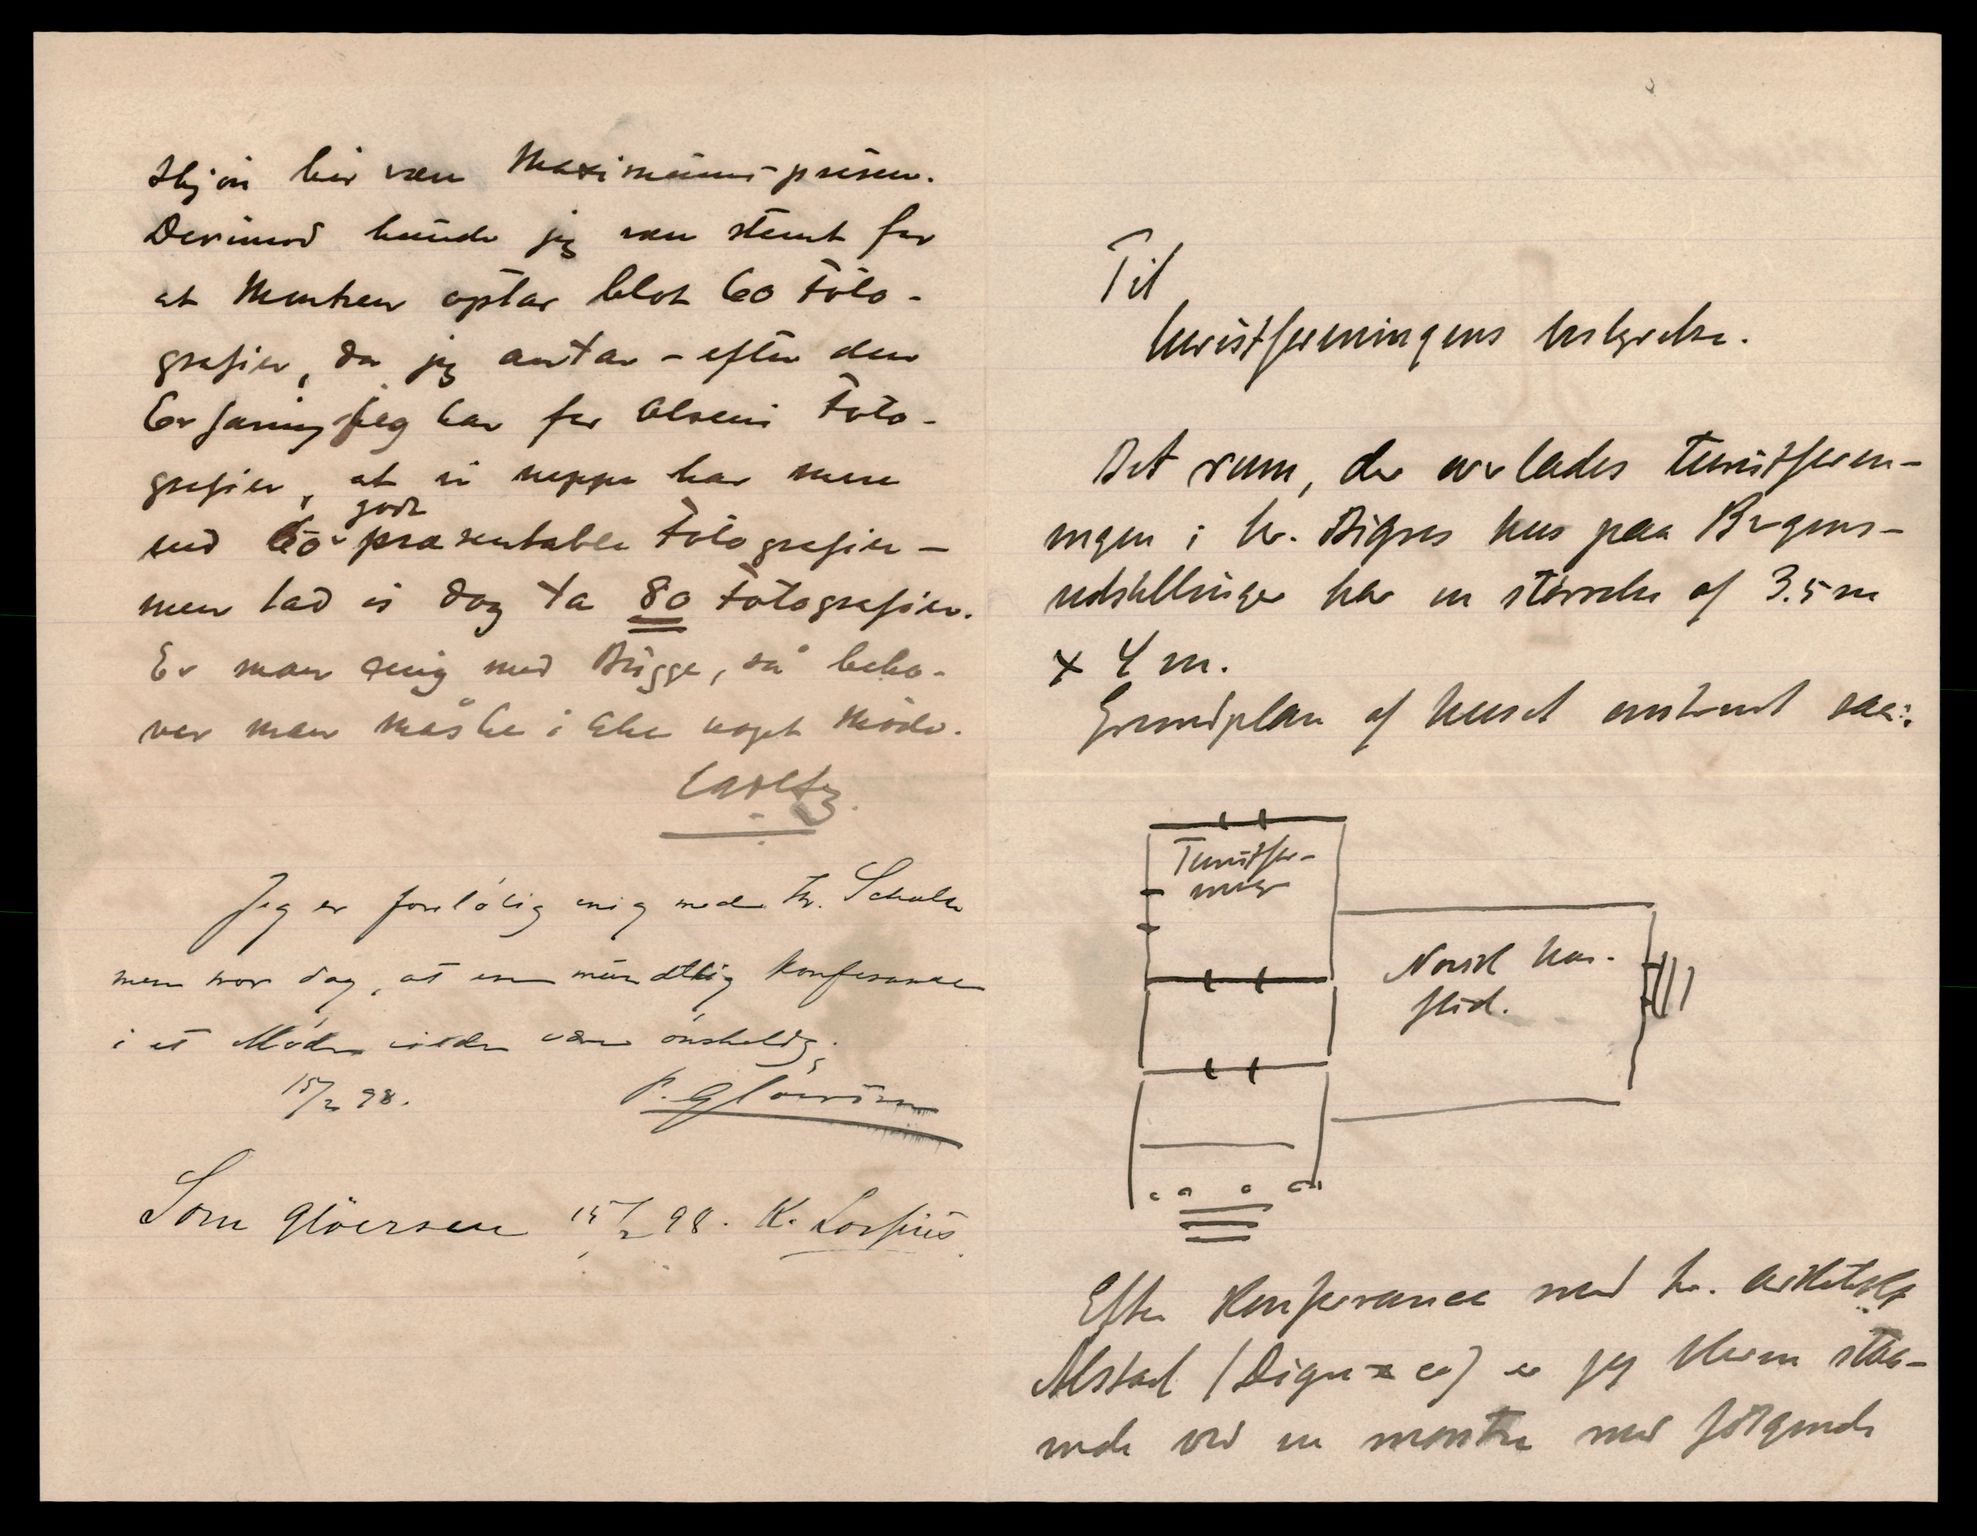 skjön bör være Maximums-prisen.
Derimod kunde jeg være stemt for
at Montren optar blot 60 Foto-
grafier, da jeg antar - efter den
Erfaring jeg har for Olsens Foto-
grafier, at vi neppe har mere
end 60 godt præsentable Fotografier -
men lad os dog ta 80 Fotografier.
Er man enig med Bugge, så behø-
ver man måske ikke noget Møde.
Jeg er foreløbig enig med Hr. Schulz
men tror dog, at en mündtlig Konferance
i et Möde vilde være önskelig.
15/2 98. P. Glöersen
Som Glöersen 15/2 98. K. Lossius
Til
turistforeningens bestyrelse.
Det rum, der overlades Turistforen-
ingen i hr. Digres hus paa Bergens-
udstillingen har en størrelse af 3.5 m
x 4 m.
Grundplan af huset omtrent saa:
Turistfor-
ening
Norsk hus-
flid.
Efter Konferance med hr. arkitekt
Alstad (Digre & co) er jeg bleven staa-
ende ved en montre med følgende